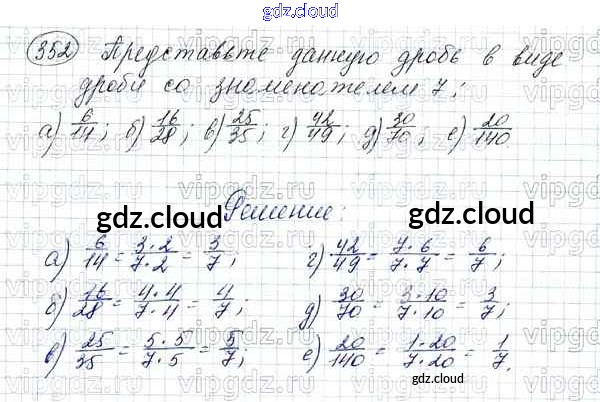 gdz.cloud
352 Представьте данную дробь в виде
дроби со знаменателем 7:
а) 6/14; б) 16/28; в) 25/35; г) 42/49; д) 30/70; е) 20/140.
gdz.cloud Решение: gdz.cloud
а) 6/14 = 3·2/7·2 = 3/7; г) 42/49 = 7·6/7·7 = 6/7;
б) 16/28 = 4·4/7·4 = 4/7; д) 30/70 = 3·10/7·10 = 3/7;
в) 25/35 = 5·5/7·5 = 5/7; е) 20/140 = 1·20/7·20 = 1/7.
gdz.cloud